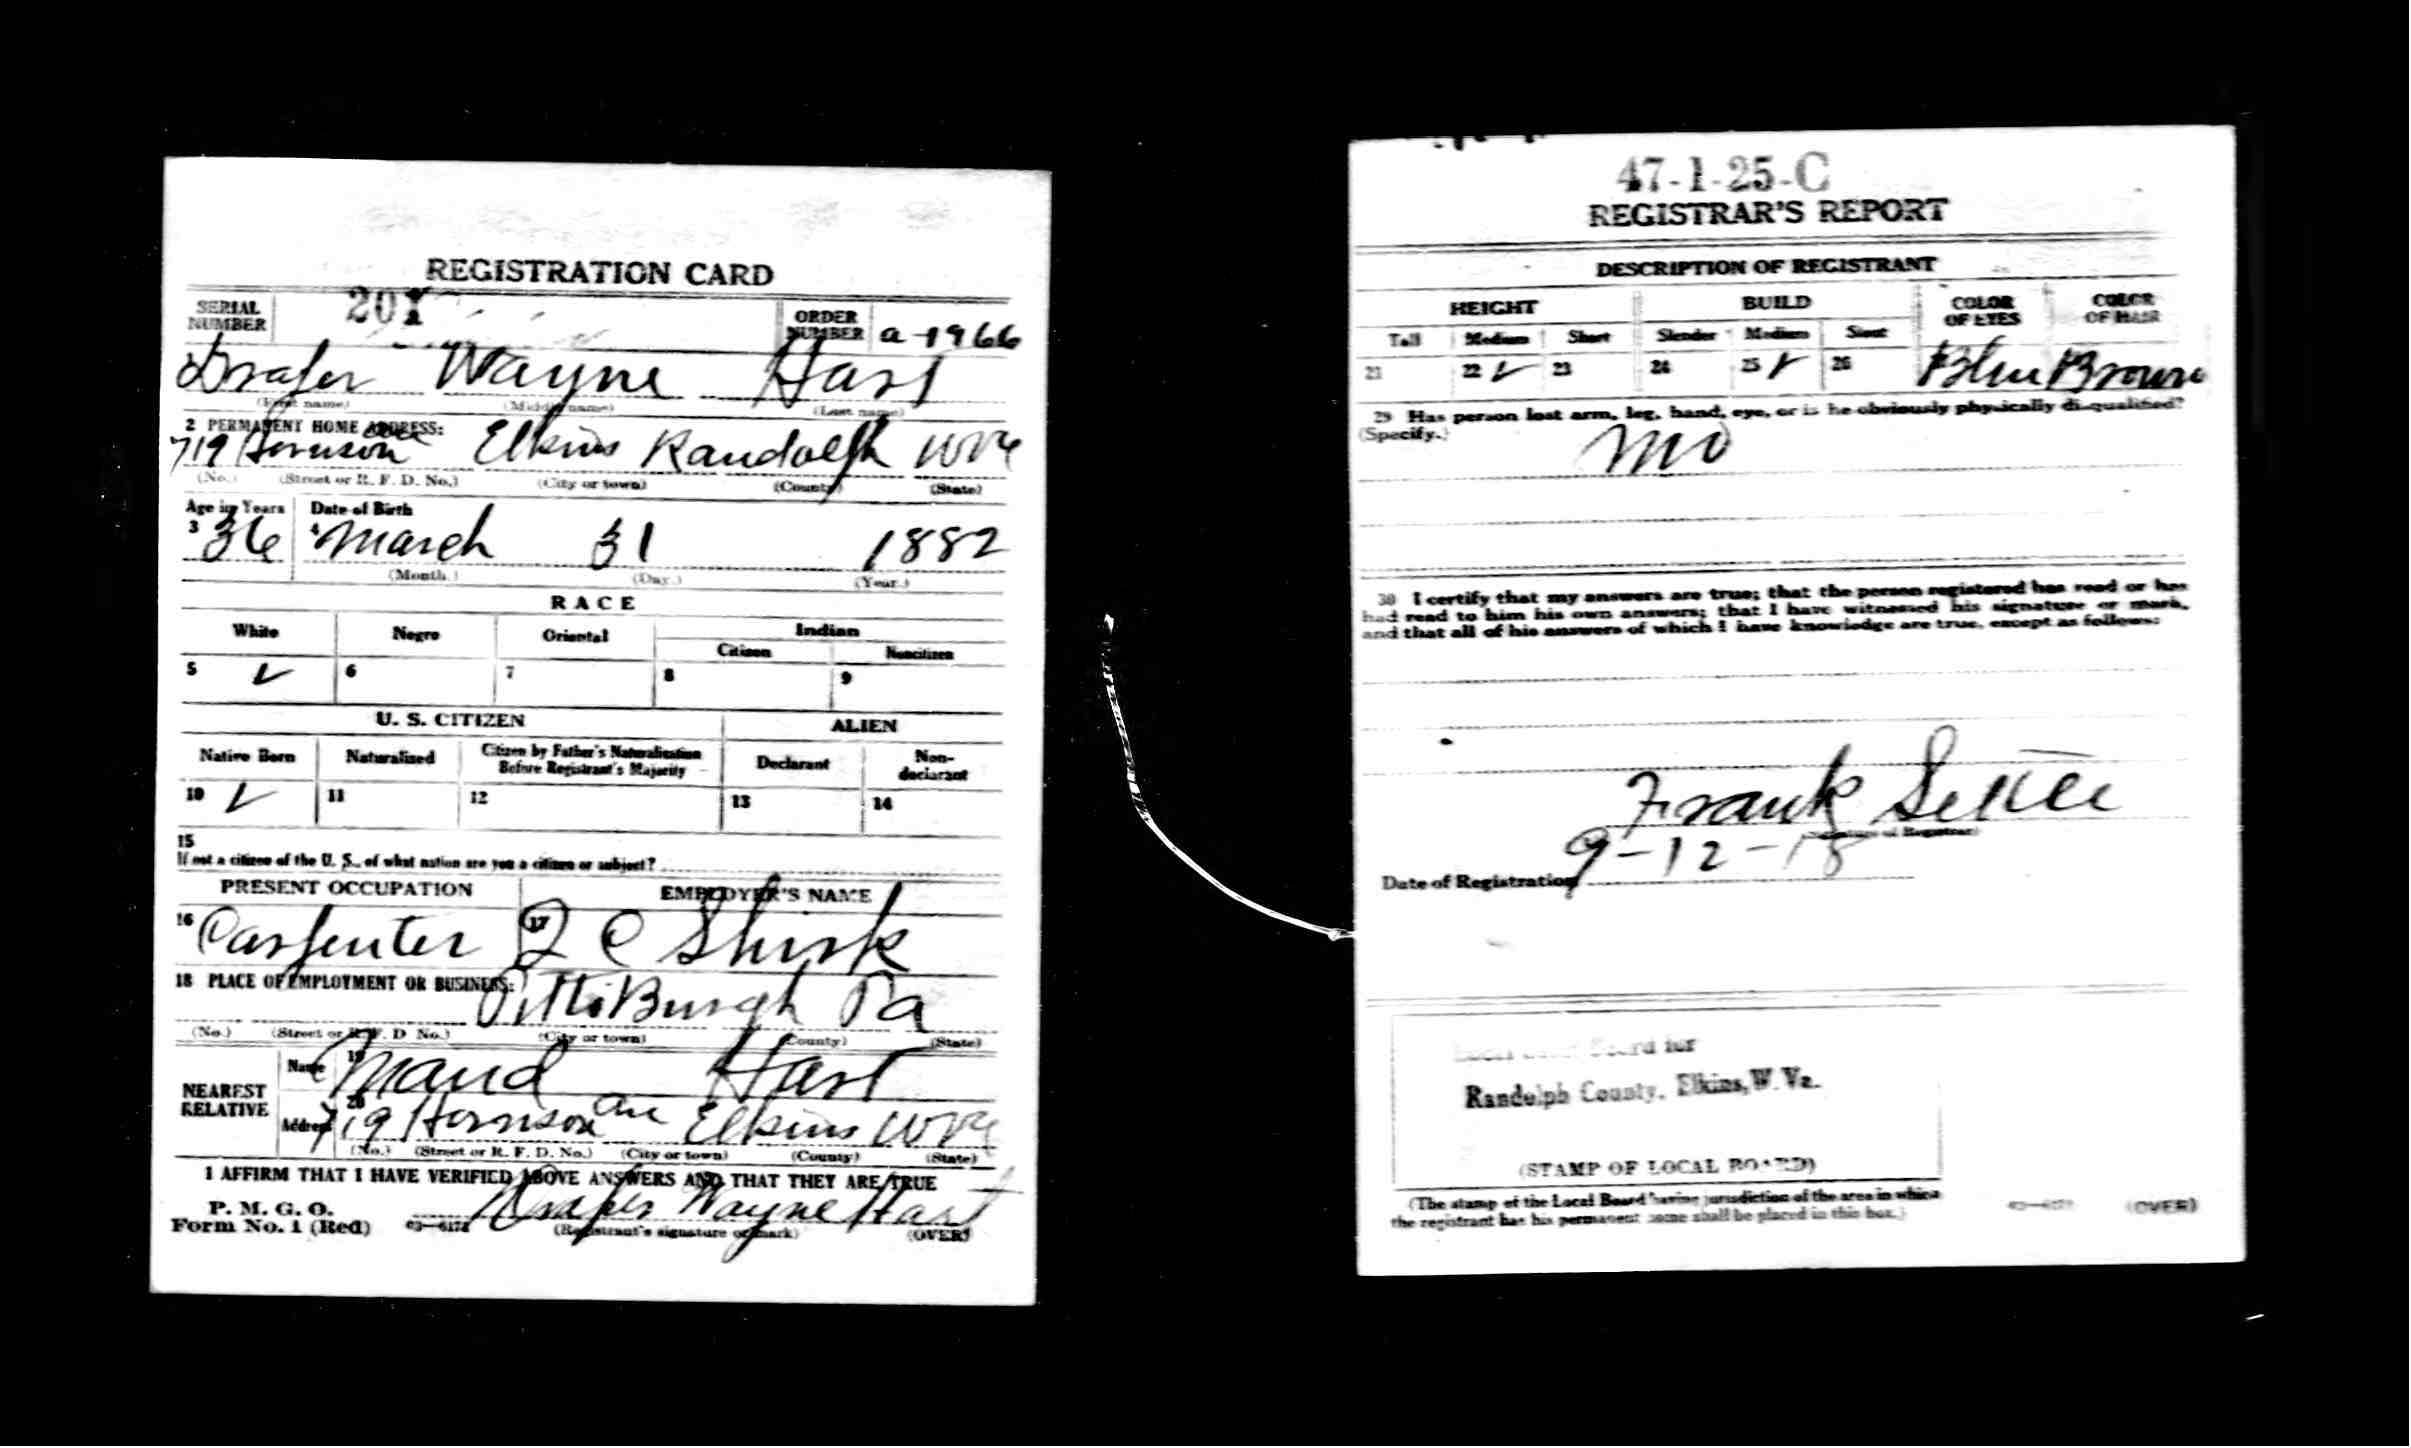 REGISTRATION CARD
SERIAL NUMBER 201
ORDER NUMBER a-1966
Draper Wayne Hart
(First name) (Middle name) (Last name)
2 PERMANENT HOME ADDRESS:
719 Harrison ave Elkins Randolph WVa
(No.) (Street or R. F. D. No.) (City or town) (County) (State)
Age in Years Date of Birth
3 36 4 March 31 1882
(Month.) (Day.) (Year.)
RACE
White Negro Oriental Indian
Citizen Noncitizen
5 ✓ 6 7 8 9
U. S. CITIZEN ALIEN
Native Born Naturalized Citizen by Father's Naturalization Before Registrant's Majority Declarant Non-declarant
10 ✓ 11 12 13 14
15
If not a citizen of the U. S., of what nation are you a citizen or subject?
PRESENT OCCUPATION EMPLOYER'S NAME
16 Carpenter 17 C Shirk
18 PLACE OF EMPLOYMENT OR BUSINESS:
PittsBurgh Pa
(No.) (Street or R. F. D No.) (City or town) (County) (State)
NEAREST RELATIVE
Name 19 Maud Hart
Address 20 719 Harrison ave Elkins WVa
(No.) (Street or R. F. D. No.) (City or town) (County) (State)
I AFFIRM THAT I HAVE VERIFIED ABOVE ANSWERS AND THAT THEY ARE TRUE
P. M. G. O.
Form No. 1 (Red) 03—6171 Draper Wayne Hart
(Registrant's signature or mark) (OVER)
47-1-25-C
REGISTRAR'S REPORT
DESCRIPTION OF REGISTRANT
HEIGHT BUILD COLOR OF EYES COLOR OF HAIR
Tall Medium Short Slender Medium Stout
21 22 ✓ 23 24 25 ✓ 26 Blue Brown
29 Has person lost arm, leg, hand, eye, or is he obviously physically disqualified?
(Specify.) No
30 I certify that my answers are true; that the person registered has read or has
had read to him his own answers; that I have witnessed his signature or mark,
and that all of his answers of which I have knowledge are true, except as follows:
Frank
(Signature of Registrar)
Date of Registration 9-12-18
Local Board for
Randolph County, Elkins, W. Va.
(STAMP OF LOCAL BOARD)
(The stamp of the Local Board having jurisdiction of the area in which
the registrant has his permanent home shall be placed in this box.)
(OVER)